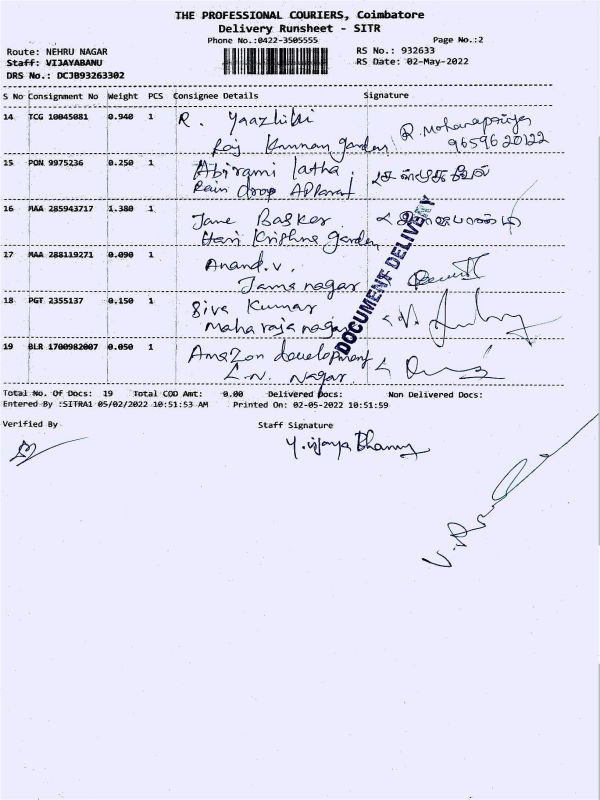 THE PROFESSIONAL COURIERS, Coimbatore
Delivery Runsheet - SITR
Phone No.:0422-3505555
Page No.:2
Route: NEHRU NAGAR
RS No.: 932633
Staff: VIJAYABANU
RS Date: 02-May-2022
DRS No.: DCJB93263302
S No Consignment No Weight PCS Consignee Details Signature
14 TCG 10045081 0.940 1 R. Yaazhini R. Mohanapriya
Raj Kannan garden 9659620122
15 PON 9975236 0.250 1 Abirami latha
Rain drop
16 MAA 285943717 1.380 1 Jane Basker
Hari Krishna garden
17 MAA 288119271 0.090 1 Anand.v.
Jama nagar
18 PGT 2355137 0.150 1 Siva Kumar
Maharaja nagar
19 BLR 1700982007 0.050 1 Amazon development
L.N. Nagar
DOCUMENT DELIVERY
Total No. Of Docs: 19 Total COD Amt: 0.00 Delivered Docs: Non Delivered Docs:
Entered By :SITRA1 05/02/2022 10:51:53 AM Printed On: 02-05-2022 10:51:59
Verified By Staff Signature
Y. Vijaya Bhanu